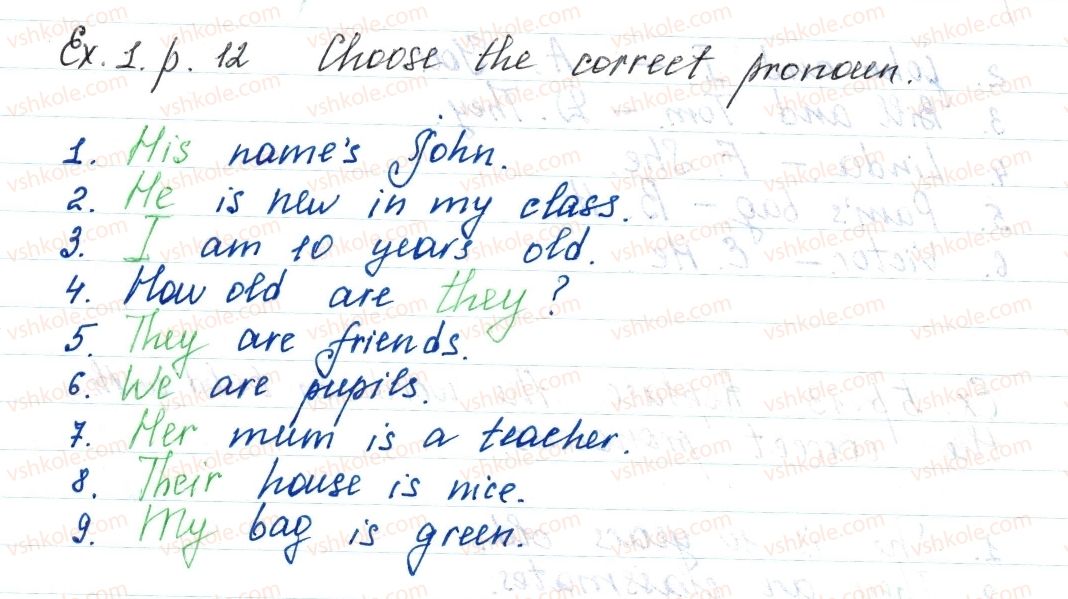 Ex. 1. p. 12 Choose the correct pronoun.
1. His name's John.
2. He is new in my class.
3. I am 10 years old.
4. How old are they?
5. They are friends.
6. We are pupils.
7. Her mum is a teacher.
8. Their house is nice.
9. My bag is green.